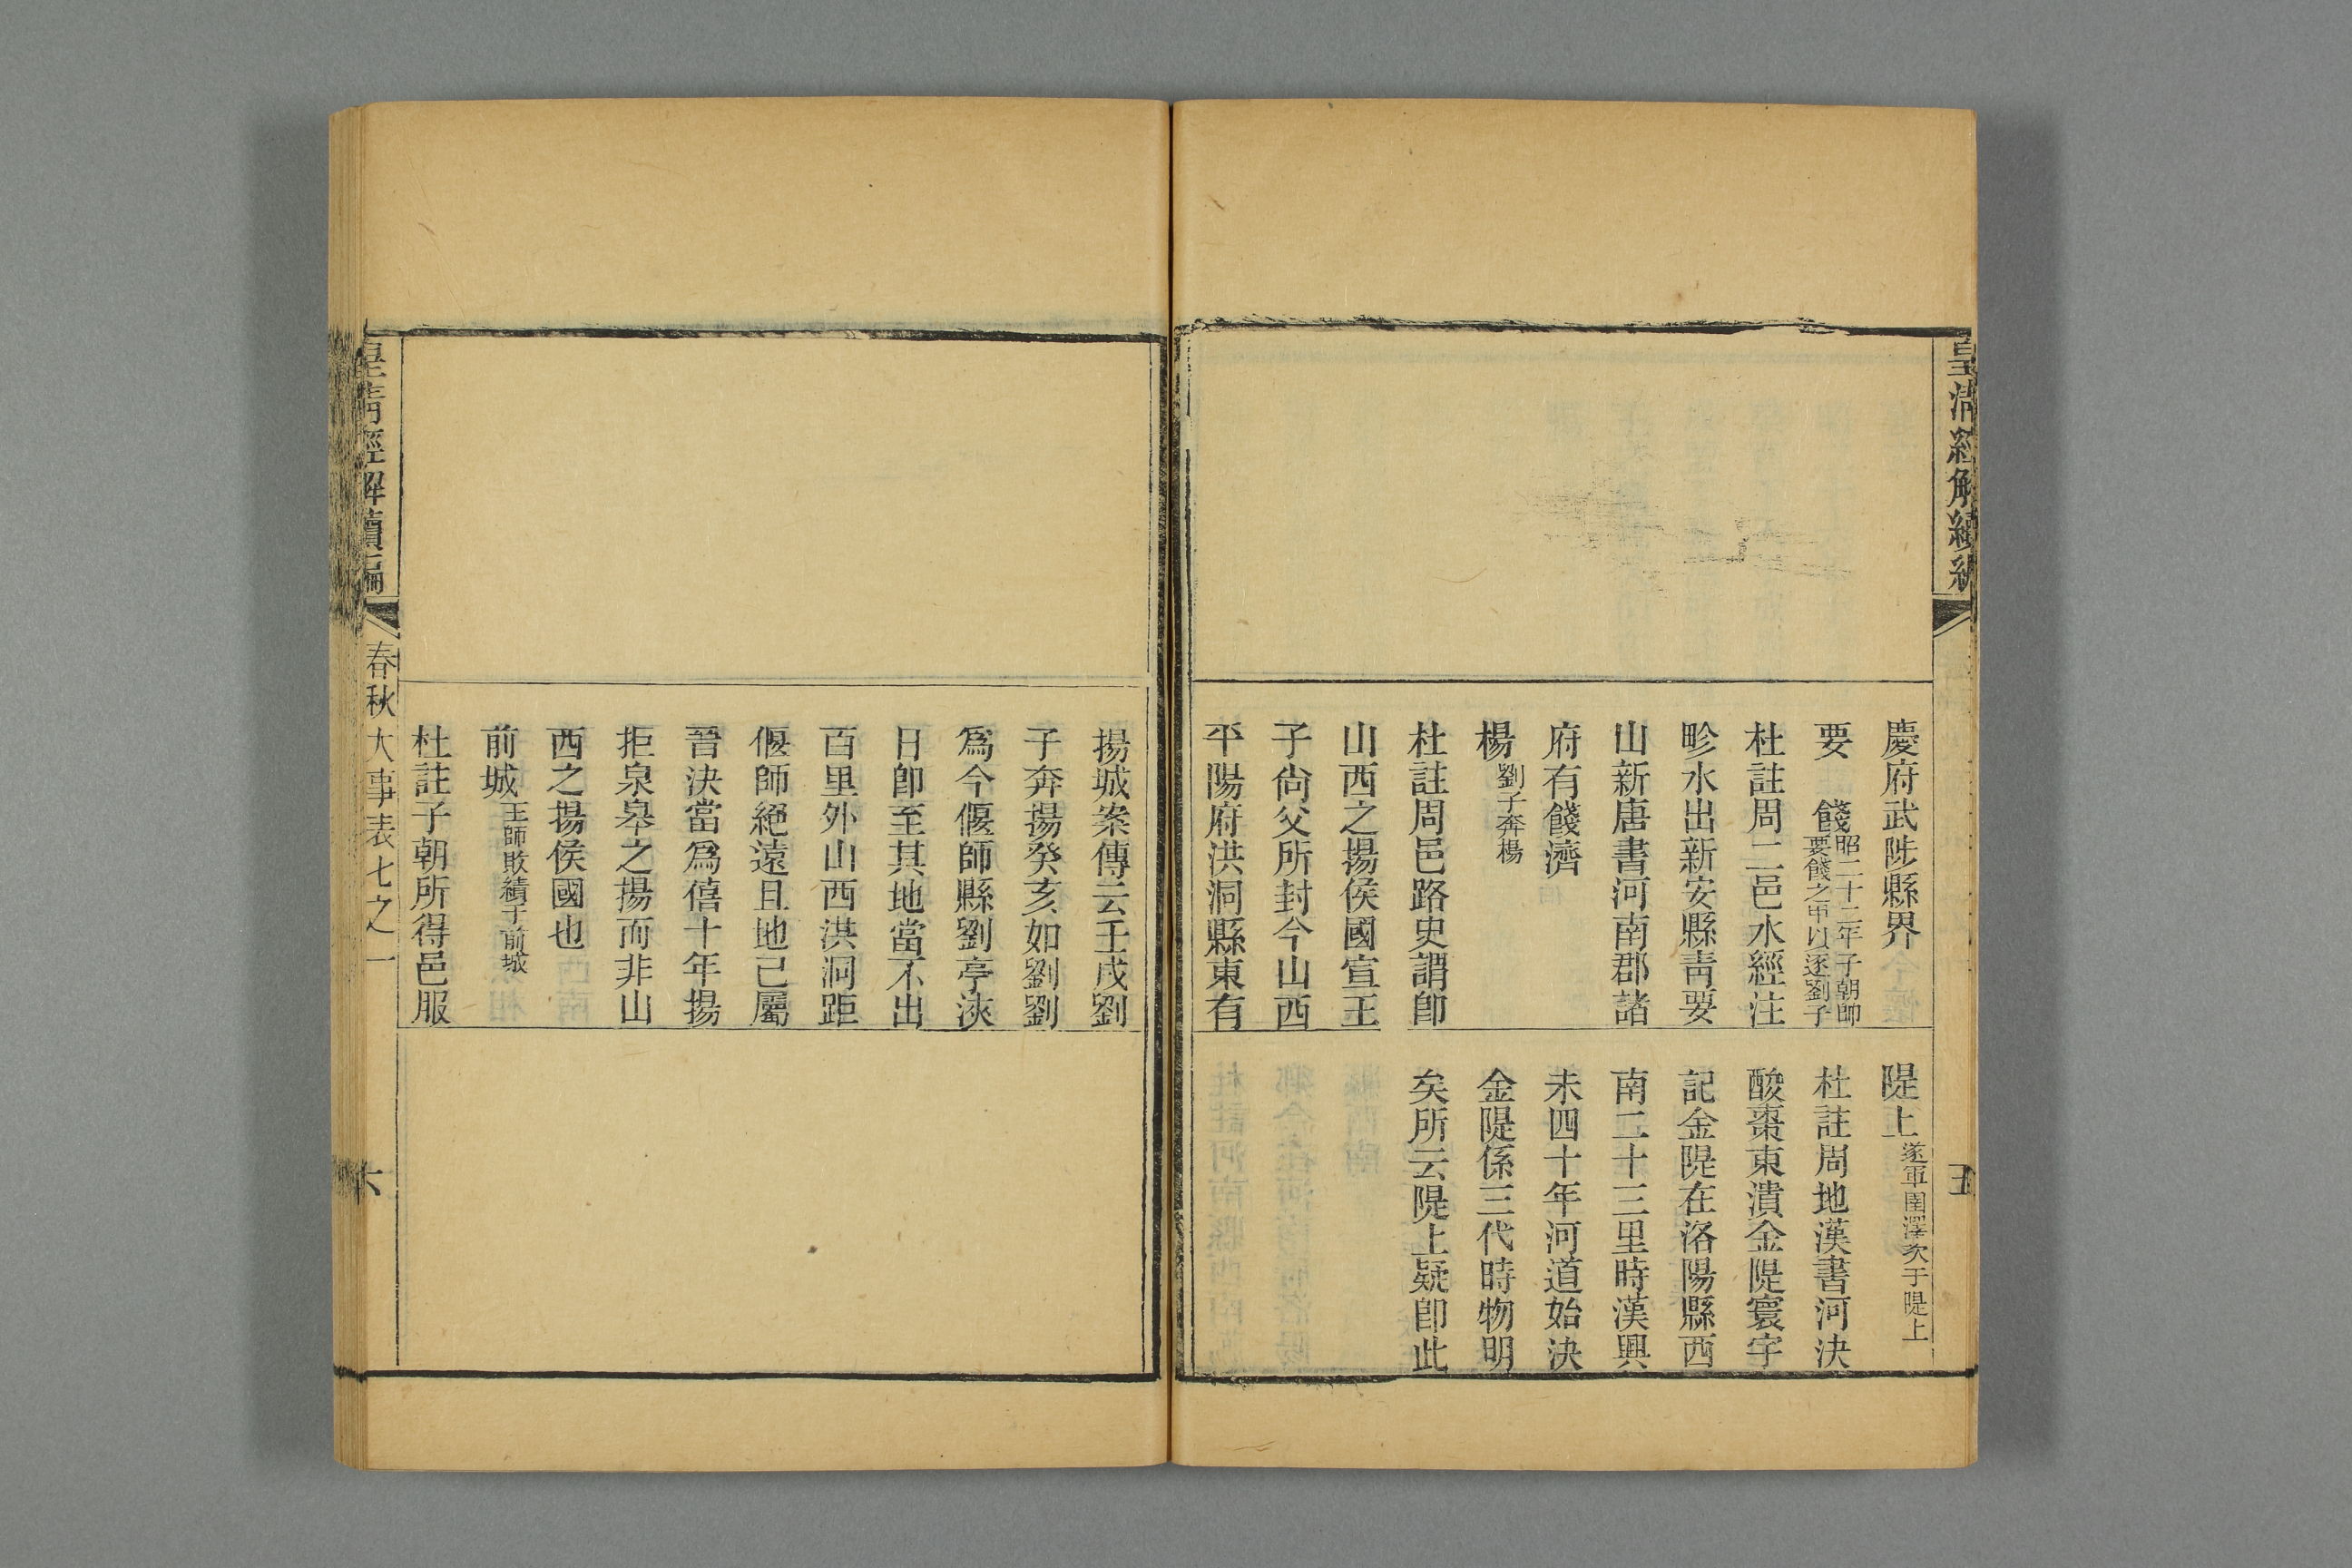 皇清經解續編
五
慶府武陟縣界
要　餞昭二十二年子朝師要餞之甲以逐劉子
杜註周二邑水經注
畛水出新安縣靑要
山新唐書河南郡諸
府有餞濟
楊劉子奔楊
杜註周邑路史謂卽
山西之揚侯國宣王
子尙父所封今山西
平陽府洪洞縣東有
隄上遂軍圍澤次于隄上
杜註周地漢書河決
酸棗東潰金隄寰宇
記金隄在洛陽縣西
南二十三里時漢興
未四十年河道始決
金隄係三代時物明
矣所云隄上疑卽此
揚城案傳云壬戌劉
子奔揚癸亥如劉劉
爲今偃師縣劉亭浹
日卽至其地當不出
百里外山西洪洞距
偃師絕遠且地已屬
晉決當爲僖十年揚
拒泉皋之揚而非山
西之揚侯國也
前城王師敗績于前城
杜註子朝所得邑服
皇清經解續編
春秋大事表七之一
六